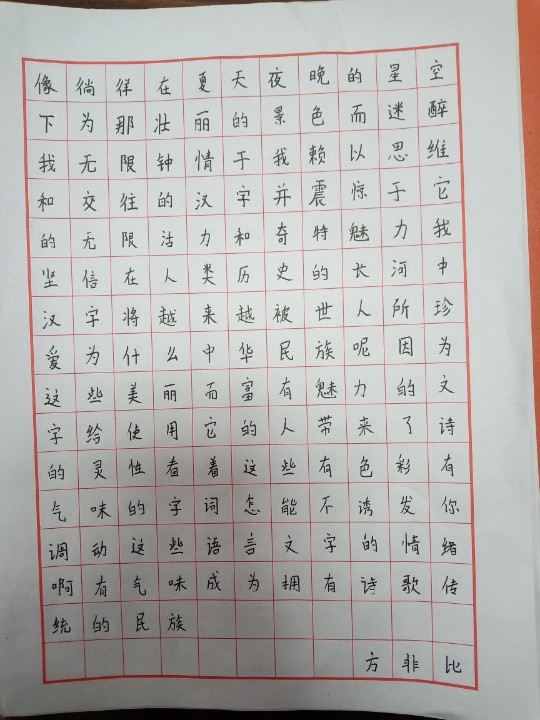 像徜徉在夏天夜晚的星空
下为那壮丽的景色而迷醉
我无限钟情于我赖以思维
和交往的汉字并震惊于它
的无限活力和奇特魅力我
坚信在人类历史的长河中
汉字将越来越被世人所珍
爱为什么中华民族呢因为
这些美丽而富有魅力的文
字给使用它的人带来了诗
的灵性看着这些有色彩有
气味的字词怎能不诱发你
调动这些语言文字的情绪
啊有气味成为拥有诗歌传
统的民族
方非比